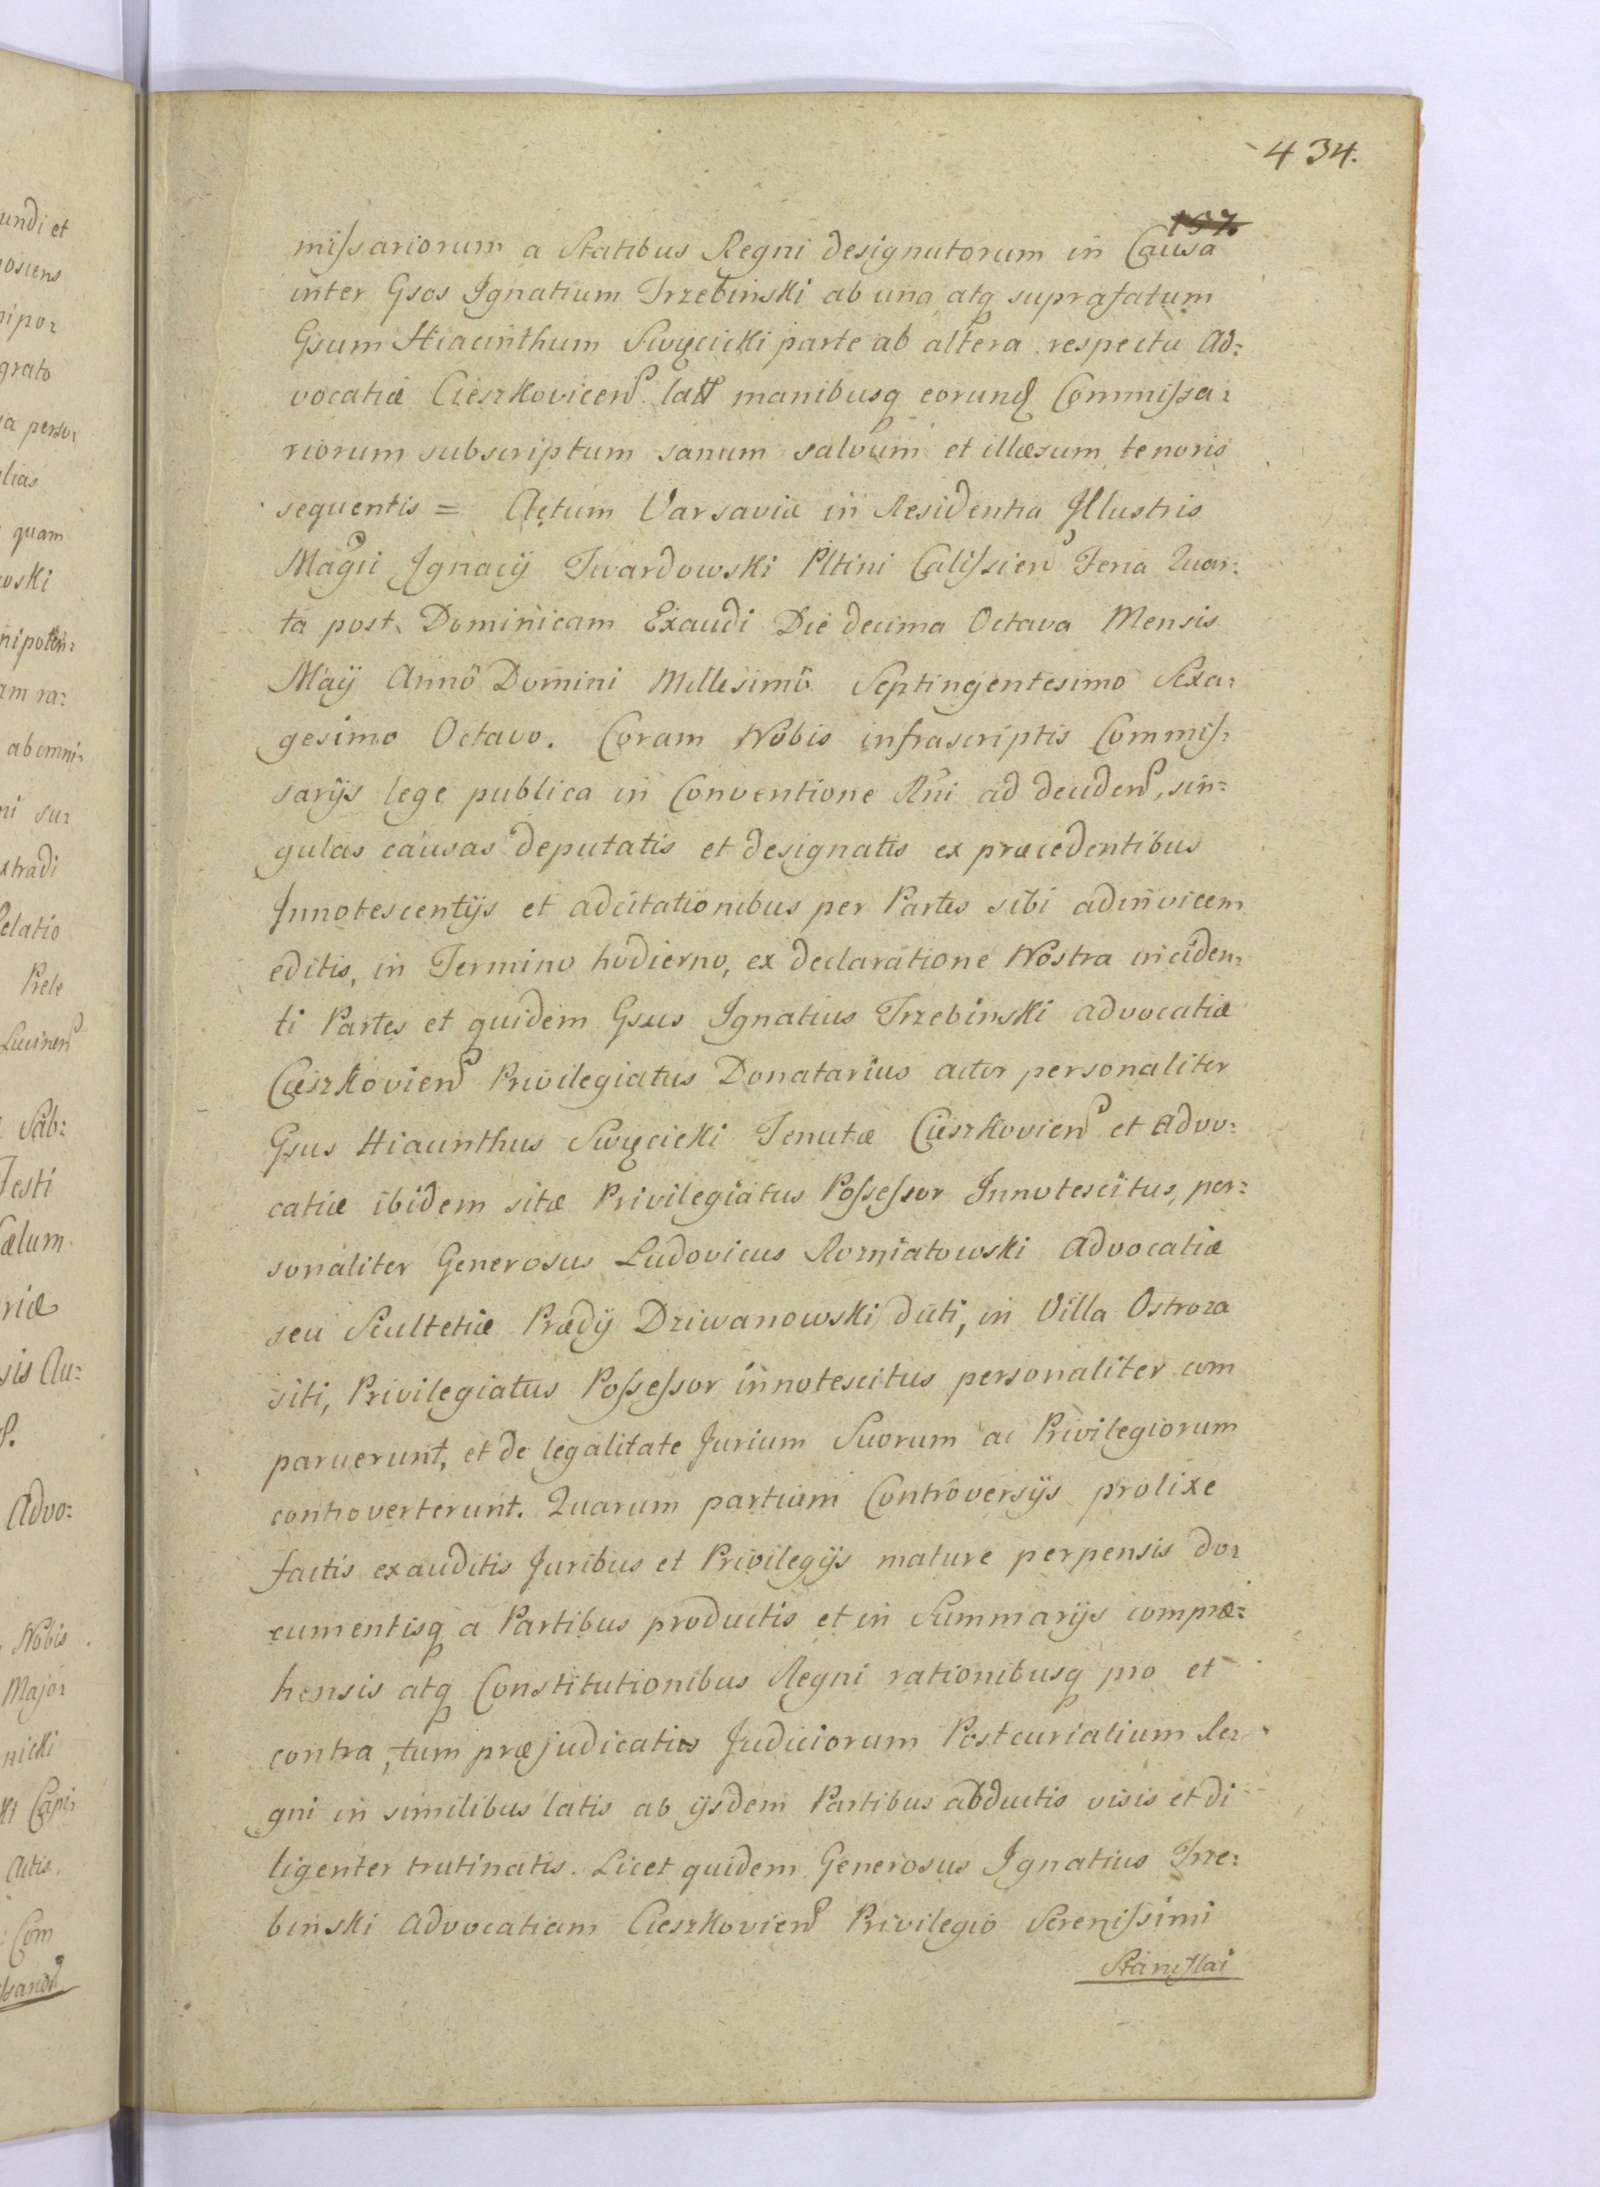 434.
157.
missariorum a Statibus Regni designatorum in Causa
inter Gsos Ignatium Trzebinski ab una atq suprafatum
Gsum Hiacinthum Swięcicki parte ab altera respectu Ad:
vocatiæ Cieszkovicen latt manibusq eorund Commissa:
riorum subscriptum sanum salvum et illæsum tenoris
sequentis = Actum Varsaviæ in Residentia Illustris
Magci Ignacij Twardowski Pltini Calissien Feria Quar:
ta post Dominicam Exaudi Die decima Octava Mensis
Maij Anno Domini Millesimo Septingentesimo Sexa:
gesimo Octavo. Coram Nobis infrascriptis Commis:
sarijs lege publica in Conventione Rni ad deciden, sin=
gulas causas deputatis et designatis ex præcedentibus
Innotescentijs et adcitationibus per Partes sibi adinvicem
editis, in Termino hodierno, ex declaratione Nostra inciden:
ti Partes et quidem Gsus Ignatius Trzebinski advocatiæ
Cieszkovien Privilegiatus Donatarius actor personaliter
Gsus Hiacinthus Swięcicki Tenutæ Cieszkovien et Advo:
catiæ ibidem sitæ Privilegiatus Possessor Innotescitus, per:
sonaliter Generosus Ludovicus Rozniatowski Advocatiæ
seu Scultetiæ Prædij Dziwanowski dicti, in Villa Ostroza
siti, Privilegiatus Possessor innotescitus personaliter com
paruerunt, et de legalitate Jurium Suorum ac Privilegiorum
controverterunt. Quarum partium Controversijs prolixe
factis exauditis Juribus et Privilegijs mature perpensis do:
cumentisq a Partibus productis et in Summarijs compræ:
hensis atq Constitutionibus Regni rationibusq pro et
contra, tum præjudicatis Judiciorum Postcurialium Re:
gni in similibus latis ab ijsdem Partibus adductis visis et di
ligenter trutinatis. Licet quidem Generosus Ignatius Trze:
binski Advocatiam Cieszkovien Privilegio Serenissimi
Stanislai
undi et
grato
a perso:
quam
wski
am ra:
ni su:
elatio
Rele
Sab:
Testi
sis Au:
Advo:
Nobis
Major
nicki
Actis.
Com